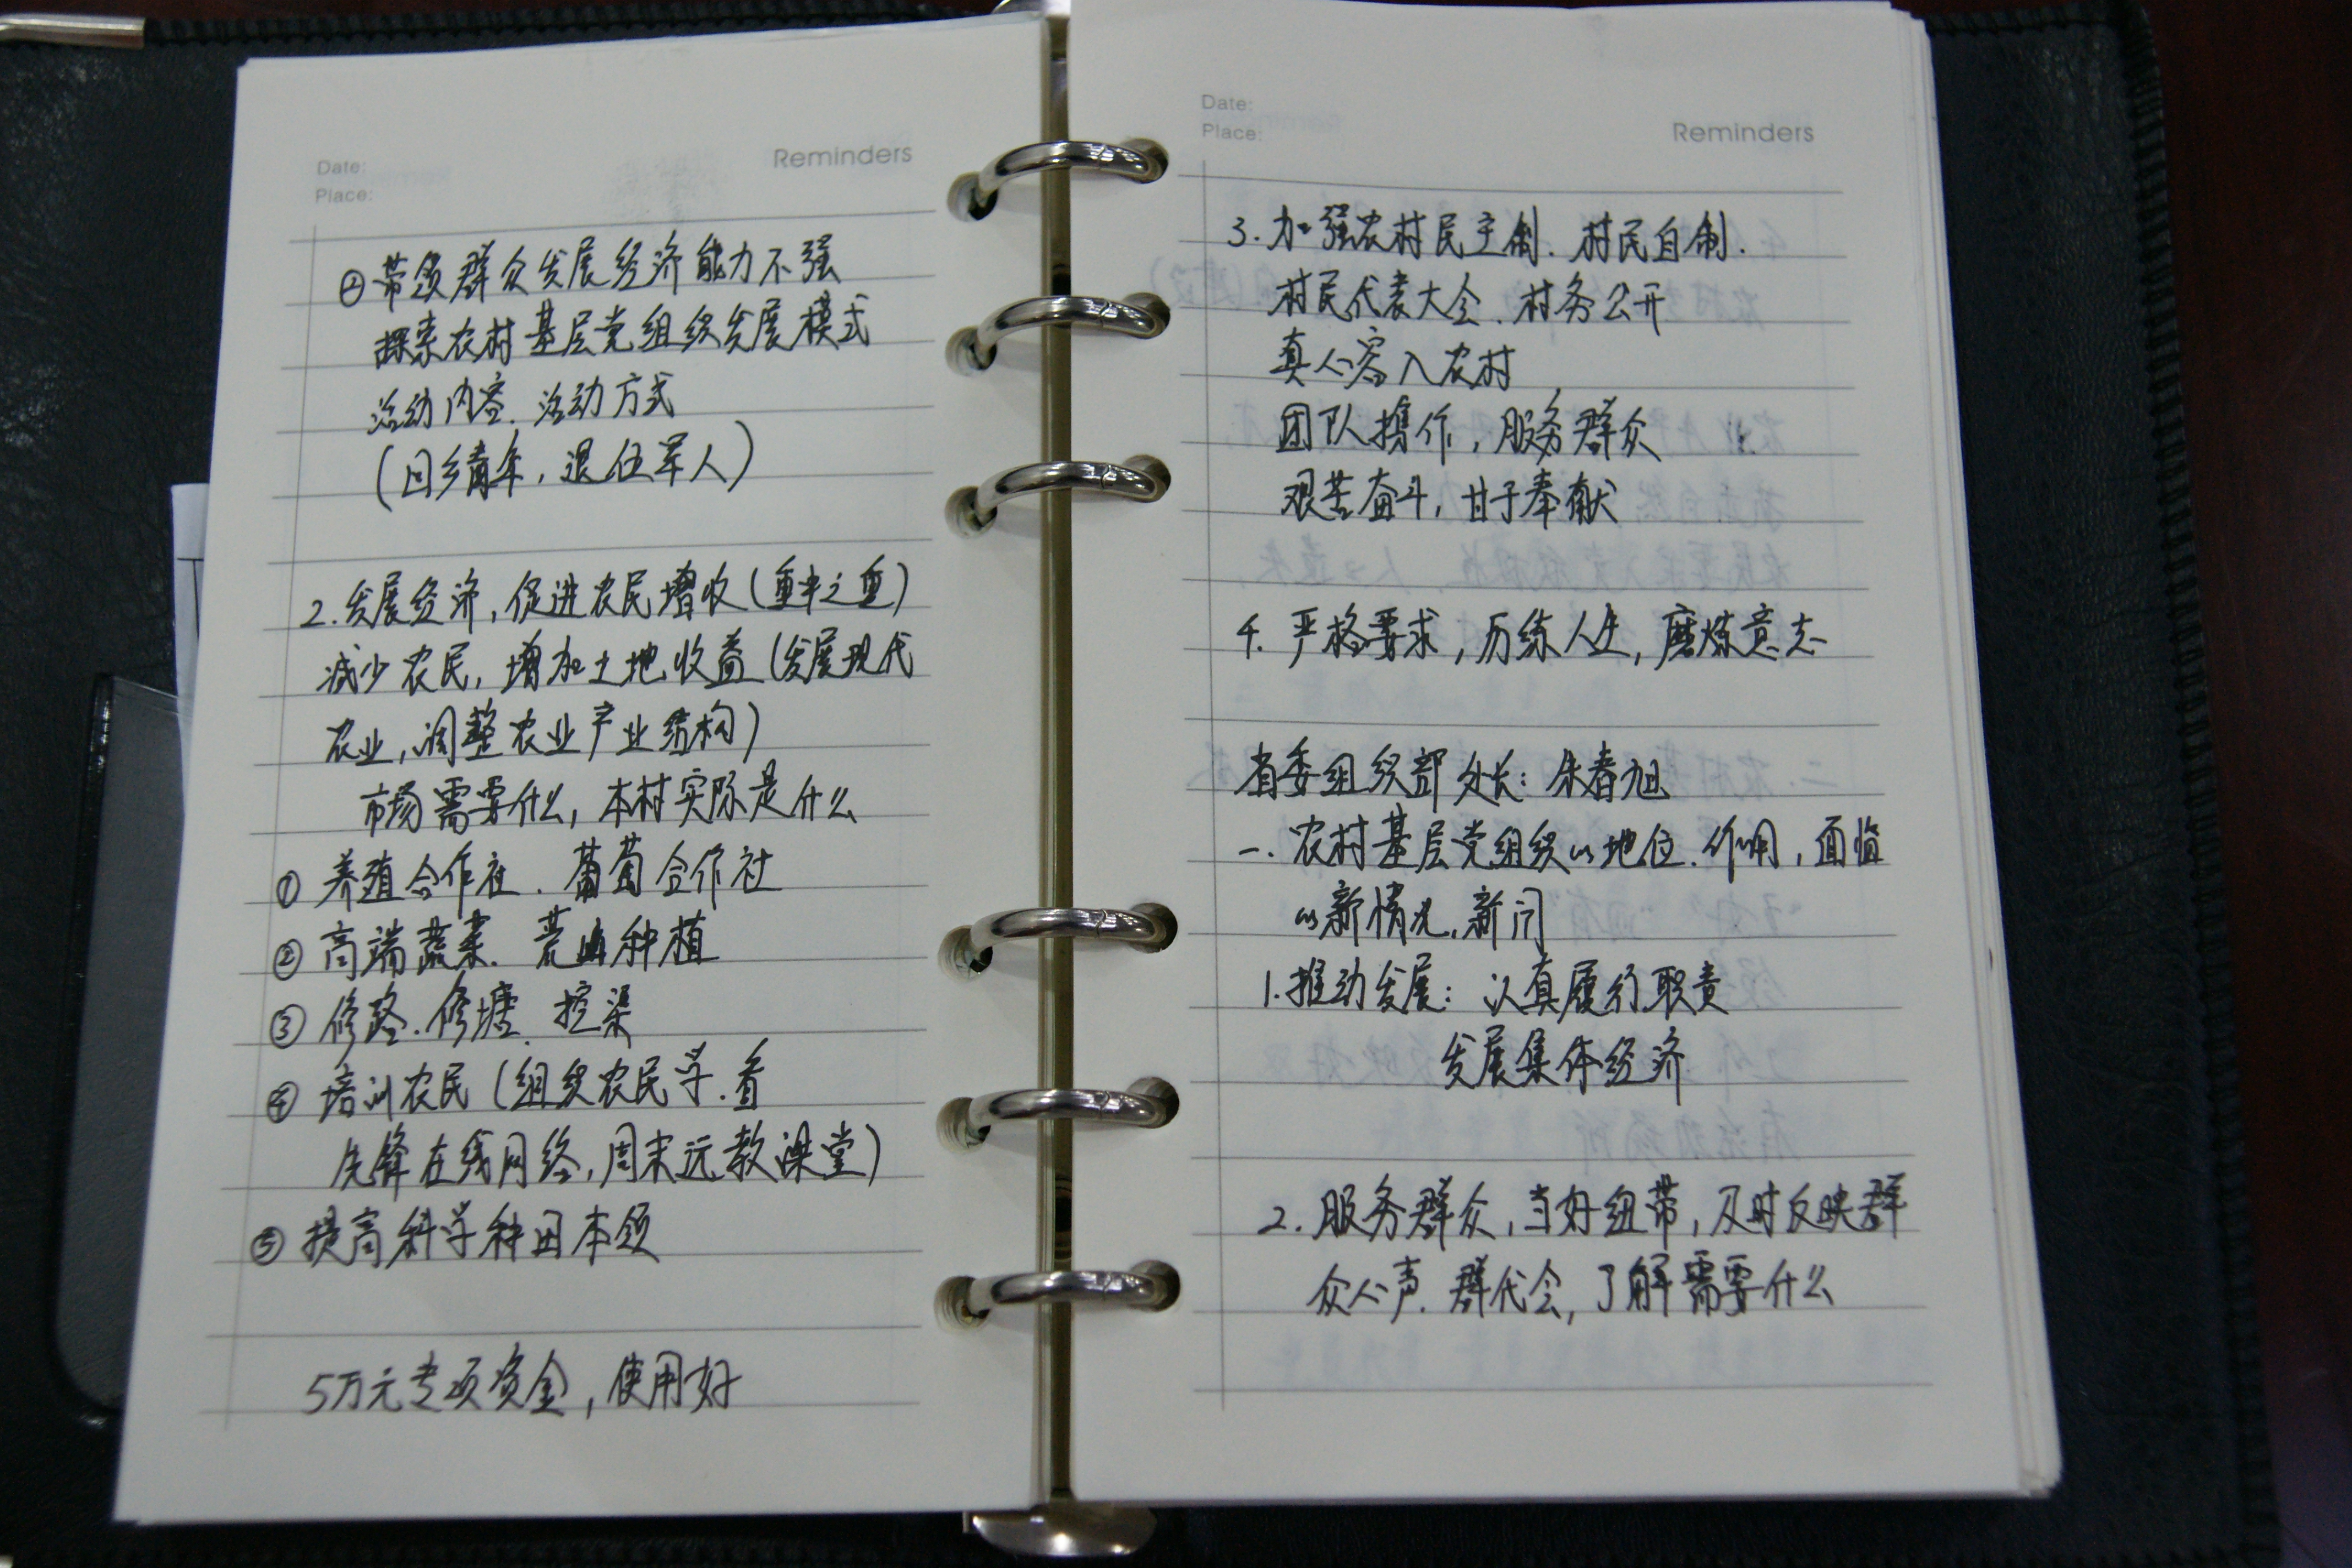 Date:
Place:
Reminders
② 带领群众发展经济能力不强
探索农村基层党组织发展模式
活动内容、活动方式
(回乡青年,退伍军人)
2.发展经济,促进农民增收(重中之重)
减少农民,增加土地收益(发展现代
农业,调整农业产业结构)
市场需要什么,本村实际是什么
① 养殖合作社、葡萄合作社
② 高端蔬菜、荒山种植
③ 修路、修塘、挖渠
④ 培训农民(组织农民学、看
先锋在线网络,周末远教课堂)
⑤ 提高科学种田本领
5万元专项资金,使用好
Date:
Place:
Reminders
3.加强农村民主制、村民自制、
村民代表大会、村务公开
真心容入农村
团队携作,服务群众
艰苦奋斗,甘于奉献
4.严格要求,历练人生,磨炼意志
省委组织部处长:朱春旭
一.农村基层党组织的地位、作用,面临
的新情况,新问
1.推动发展:认真履行职责
发展集体经济
2.服务群众,当好纽带,及时反映群
众心声、群代会,了解需要什么